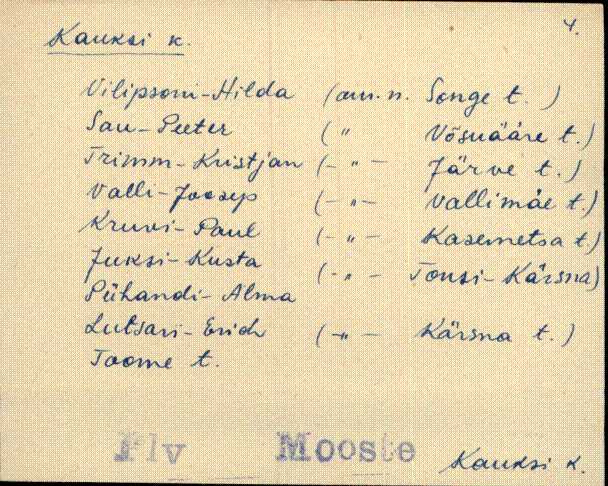 4.
Kauksi k.
Vilipsoni-Hilda (am. n. Songe t. )
Sau-Peeter ( " Võsuääre t. )
Trimm-Kristjan (- " - Järve t. )
Valli-Joosep (- " - Vallimäe t. )
Kruvi-Paul (- " - Kasemetsa t. )
Juksi-Kusta (- " - Tonsi-Kärsna)
Pühandi-Alma
Lutsari-Erich (- " - Kärsna t. )
Toome t.
Plv Mooste
Kauksi k.